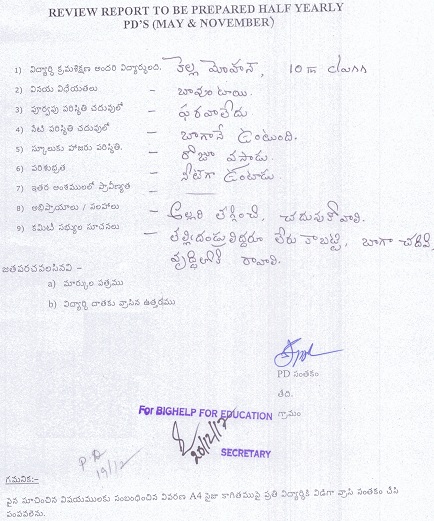 REVIEW REPORT TO BE PREPARED HALF YEARLY
PD'S (MAY & NOVEMBER)
1) విద్యార్థి క్రమశిక్షణ అందరి విద్యార్థులది. మోహన్, 10 th class
2) వినయ విధేయతలు - బావుంటాయి.
3) పూర్వపు పరిస్థితి చదువులో - ఫరవాలేదు
4) నేటి పరిస్థితి చదువులో - బాగానే ఉంటుంది.
5) స్కూలుకు హాజరు పరిస్థితి. - రోజూ వస్తాడు.
6) పరిశుభ్రత - నీట్‌గా ఉంటాడు.
7) ఇతర అంశములలో ప్రావీణ్యత -
8) అభిప్రాయాలు / సలహాలు - అల్లరి తగ్గించి, చదువుకోవాలి.
9) కమిటీ సభ్యుల సూచనలు - తల్లిదండ్రులిద్దరూ లేరు కాబట్టి, బాగా చదివి,
వృద్ధిలోకి రావాలి.
జతపరచవలసినవి -
a) మార్కుల పత్రము
b) విద్యార్థి దాతకు వ్రాసిన ఉత్తరము
PD సంతకం
తేది.
గ్రామం
For BIGHELP FOR EDUCATION
20/12/17
SECRETARY
PD
19/12
గమనిక:-
పైన సూచించిన విషయములకు సంబంధించిన వివరణ A4 సైజు కాగితముపై ప్రతి విద్యార్థికి విడిగా వ్రాసి సంతకం చేసి
పంపవలెను.